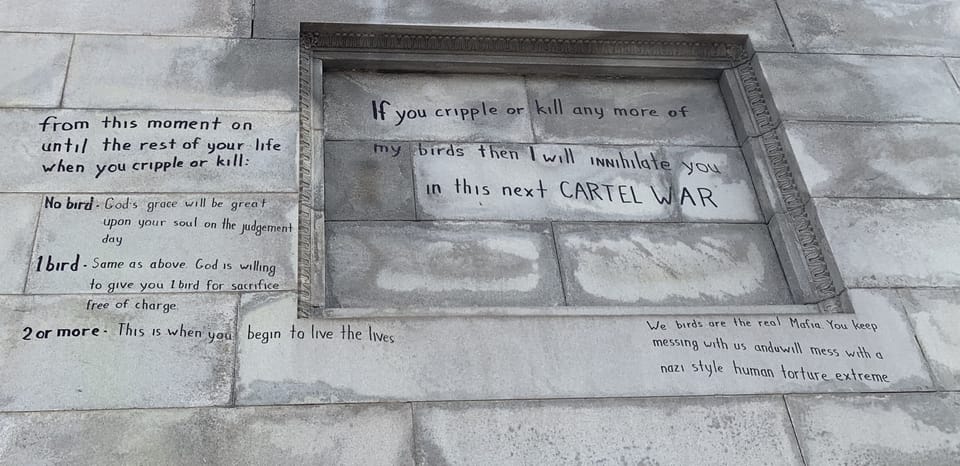 from this moment on
until the rest of your life
when you cripple or kill:
No bird - God's grace will be great
upon your soul on the judgement
day
1 bird - Same as above. God is willing
to give you 1 bird for sacrifice
free of charge.
2 or more - This is when you begin to live the lives
If you cripple or kill any more of
my birds then I will INNihilate you
in this next CARTEL WAR
We birds are the real Mafia. You keep
messing with us anduwill mess with a
nazi style human torture extreme